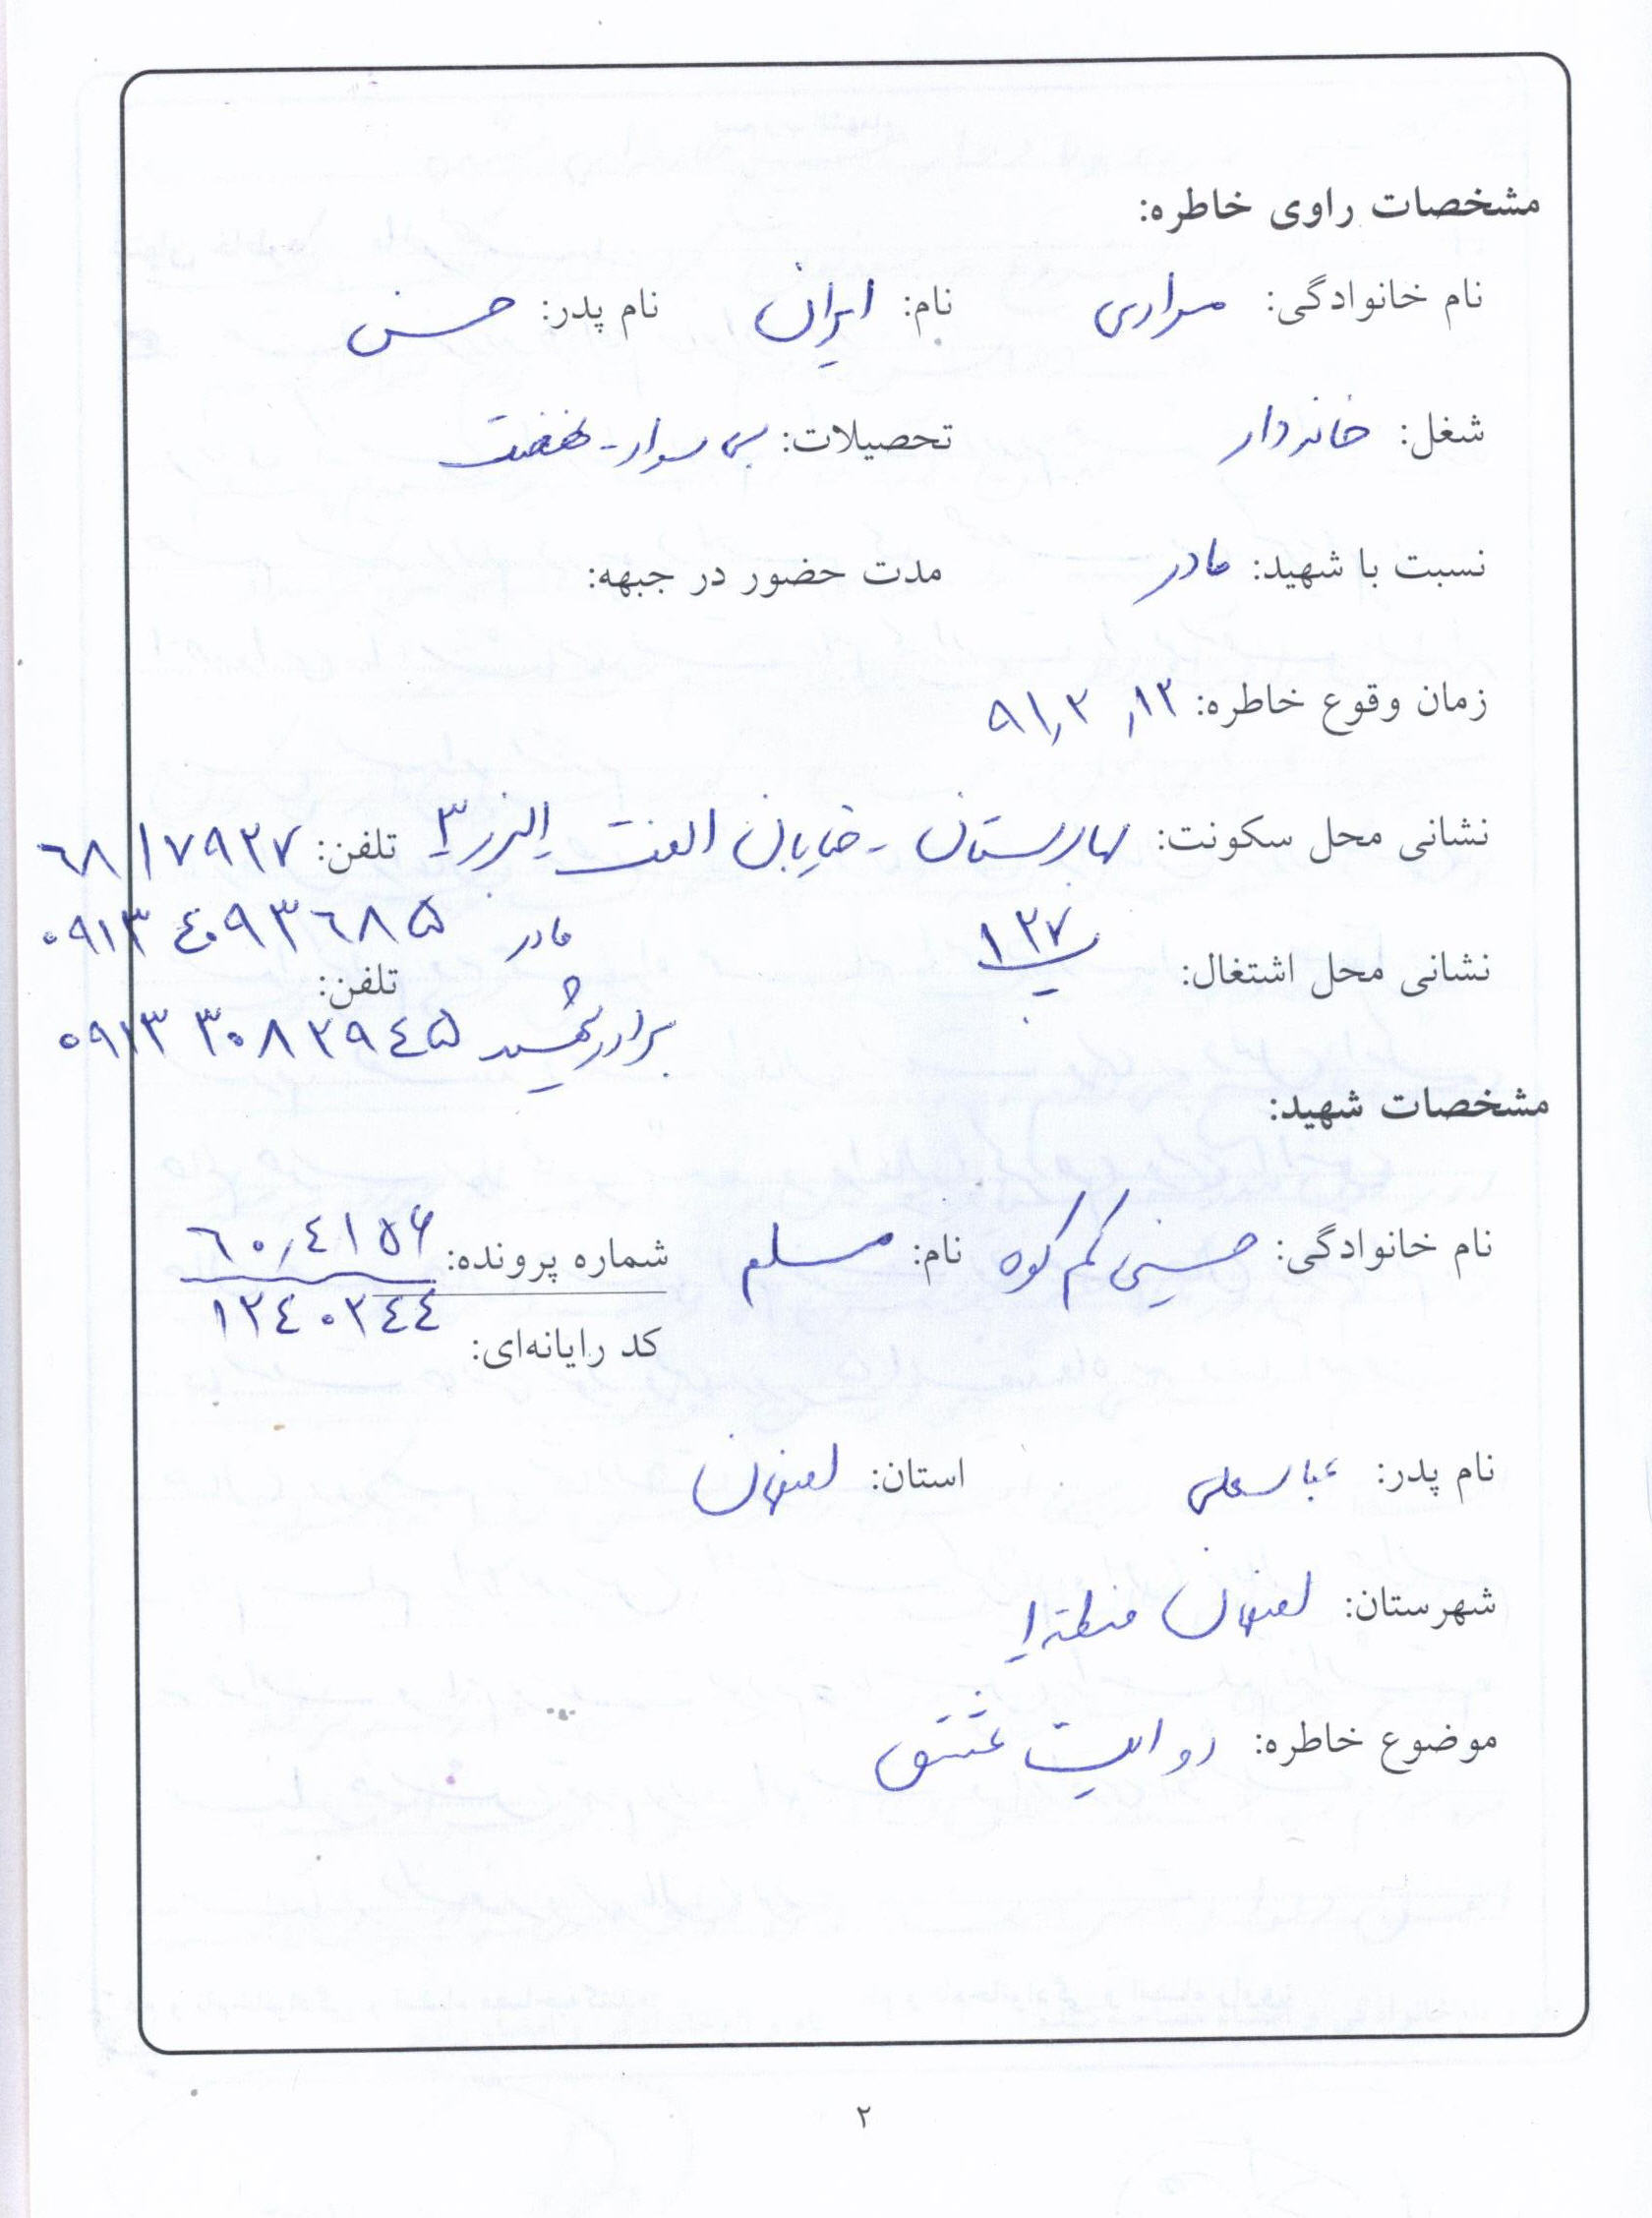 مشخصات راوی خاطره:
نام خانوادگی: مرادی نام: ایران نام پدر: حسن
شغل: خانه دار تحصیلات: بی سواد - نهضت
نسبت با شهید: مادر مدت حضور در جبهه:
زمان وقوع خاطره: ۹۱,۲,۱۲
نشانی محل سکونت: بهارستان - خیابان الفت البرز ۳ تلفن: ۶۸۱۷۹۲۷
پ ۱۲۷ مادر ۰۹۱۳۴۰۹۳۶۸۵
نشانی محل اشتغال: تلفن:
برادر شهید ۰۹۱۳۳۰۸۲۹۴۵
مشخصات شهید:
نام خانوادگی: حسینی کم کوه نام: مسلم شماره پرونده: ۶۰,۴۱۵۶
کد رایانه‌ای: ۱۲۴۰۲۴۴
نام پدر: عباسعلی استان: اصفهان
شهرستان: اصفهان منطقه ۱
موضوع خاطره: روایت عشق
۲